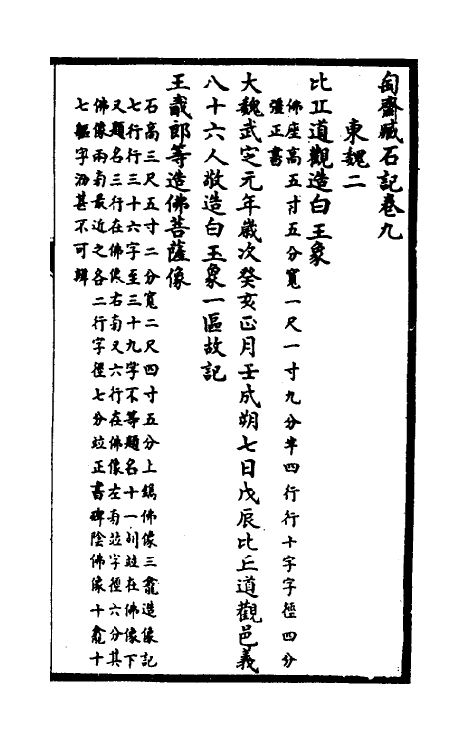 匋齋臧石記卷九
東魏二
比丘道觀造白玉象
佛座高五寸五分寬一尺一寸九分半四行行十字字徑四分
彊正書
大魏武定元年歲次癸亥正月壬戌朔七日戊辰比丘道觀邑義
八十六人敬造白玉象一區故記
王貳郎等造佛菩薩像
石高三尺五寸二分寬二尺四寸五分上鐫佛像三龕造像記
七行行三十六字至三十九字不等題名十一列竝在佛像下
又題名三行在佛像右旁又六行在佛像左旁竝字徑六分其
佛像兩旁最近之各二行字徑七分竝正書碑陰佛像十龕十
七軀字泐甚不可辨